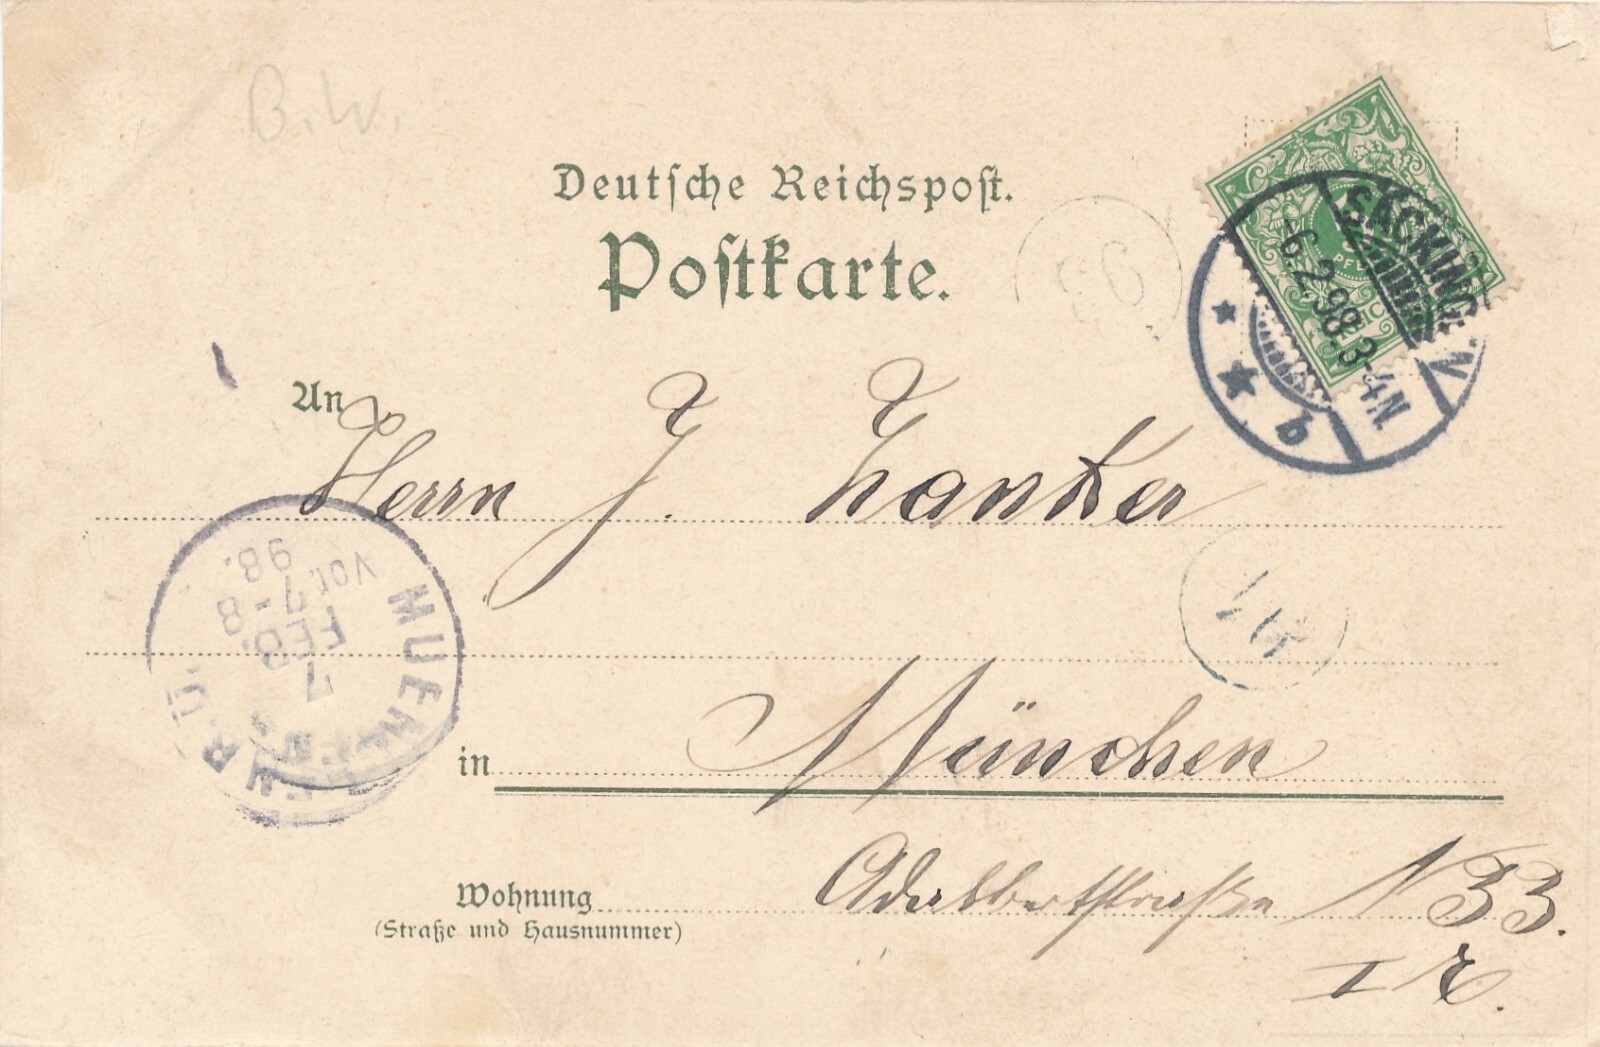 B.W.
Deutsche Reichspost.
Postkarte.
SÄCKINGEN
-6.2.98.3-4N
b
An
Herrn J. Zanker
MUENCHEN
7
FEB.
7-8
Vor.
98.
in München
Wohnung Adalbertstraße N 33.
(Straße und Hausnummer)
I r.